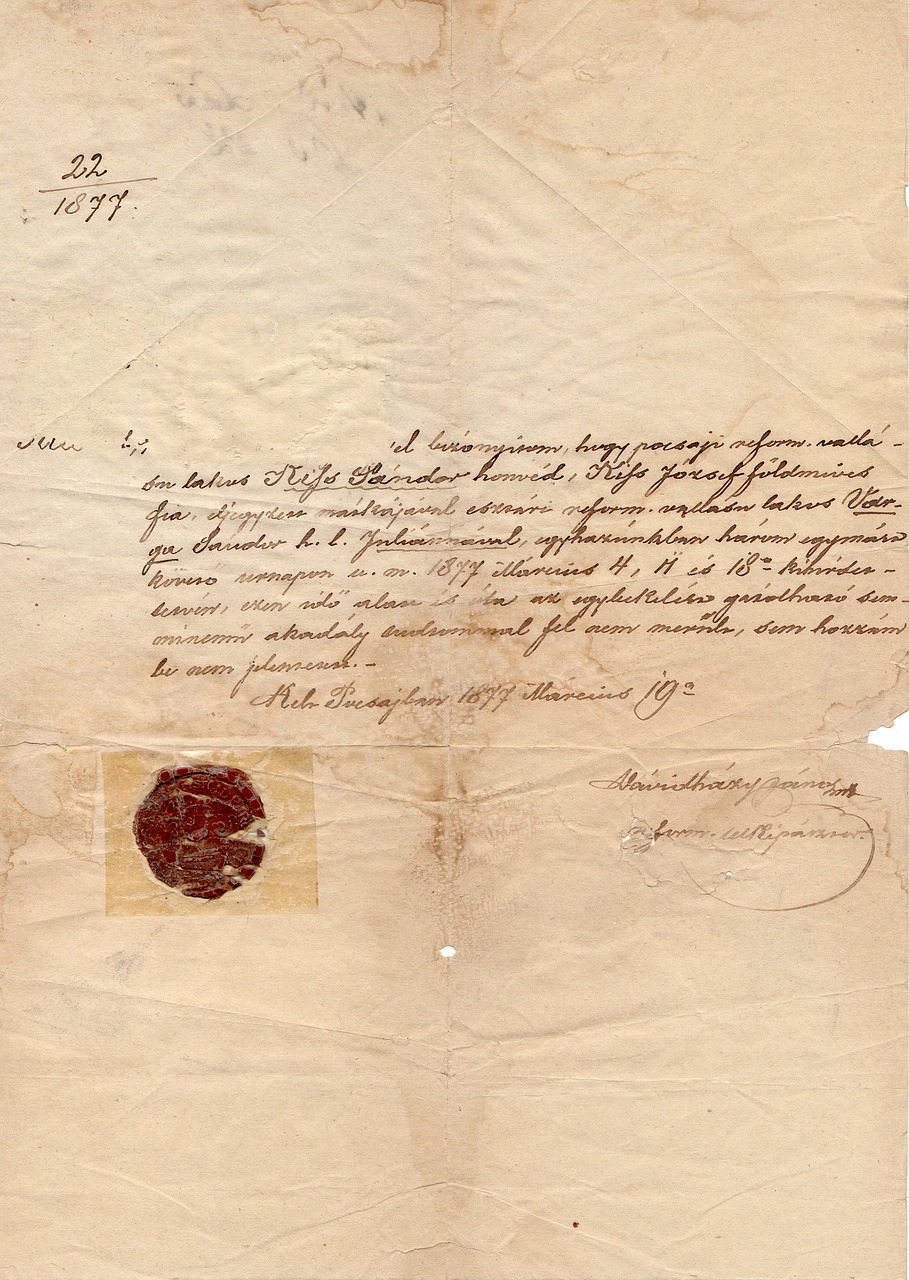 22
1877.
el bizonyitom, hogy pocsaji reform. vallá-
su lakos Kiss Sándor honvéd, Kiss József földmives
fia, eljegyzett mátkájával esztári reform. vallásu lakos Var-
ga Sándor h. l. Juliánnával, egyházunkban három egymást
követő urnapon u. m. 1877 Március 4, 11 és 18án kihirdet-
tetvén, ezen idő alatt és óta az egybekelést gátolható sem-
minemü akadály tudtommal fel nem merült, sem hozzám
be nem jelentetett. -
Kelt Pocsajban 1877 Március 19én
Dávidházy János
reform. lelkipásztor.